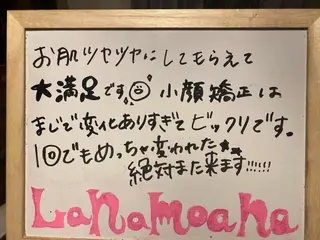 お肌ツヤツヤにしてもらえて
大満足です。小顔矯正は
まじで変化ありすぎてビックリです。
1回でもめっちゃ変われた★★
絶対また来ます!!!!!!
Lanamoana